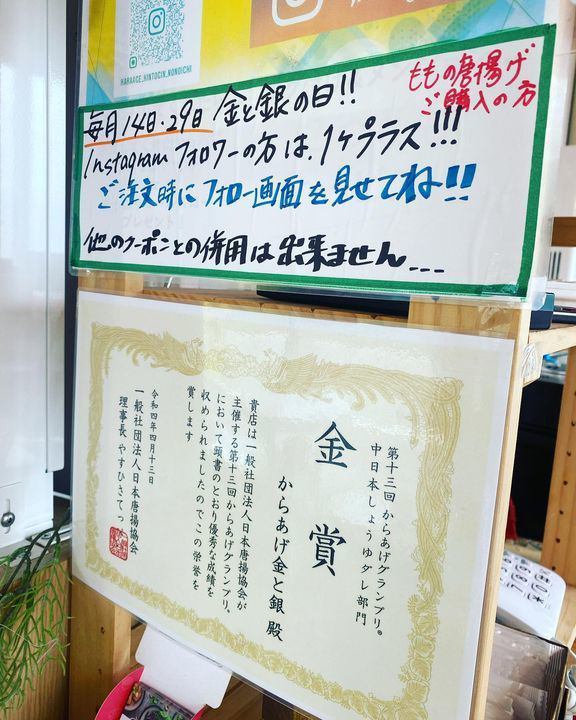 KARAAGE_KINTOGIN_NONOICHI
毎月14日・29日 金と銀の日!!
ももの唐揚げ
ご購入の方
Instagram フォロワーの方は、1ヶプラス!!!
ご注文時にフォロー画面を見せてね!!
他のクーポンとの併用は出来ません...
第十三回 からあげグランプリ®
中日本しょうゆダレ部門
金賞
からあげ金と銀 殿
貴店は一般社団法人日本唐揚協会が
主催する第十三回からあげグランプリ®
において頭書のとおり優秀な成績を
収められましたのでこの栄誉を
賞します
令和四年四月十三日
一般社団法人日本唐揚協会
理事長 やすひさてっぺい